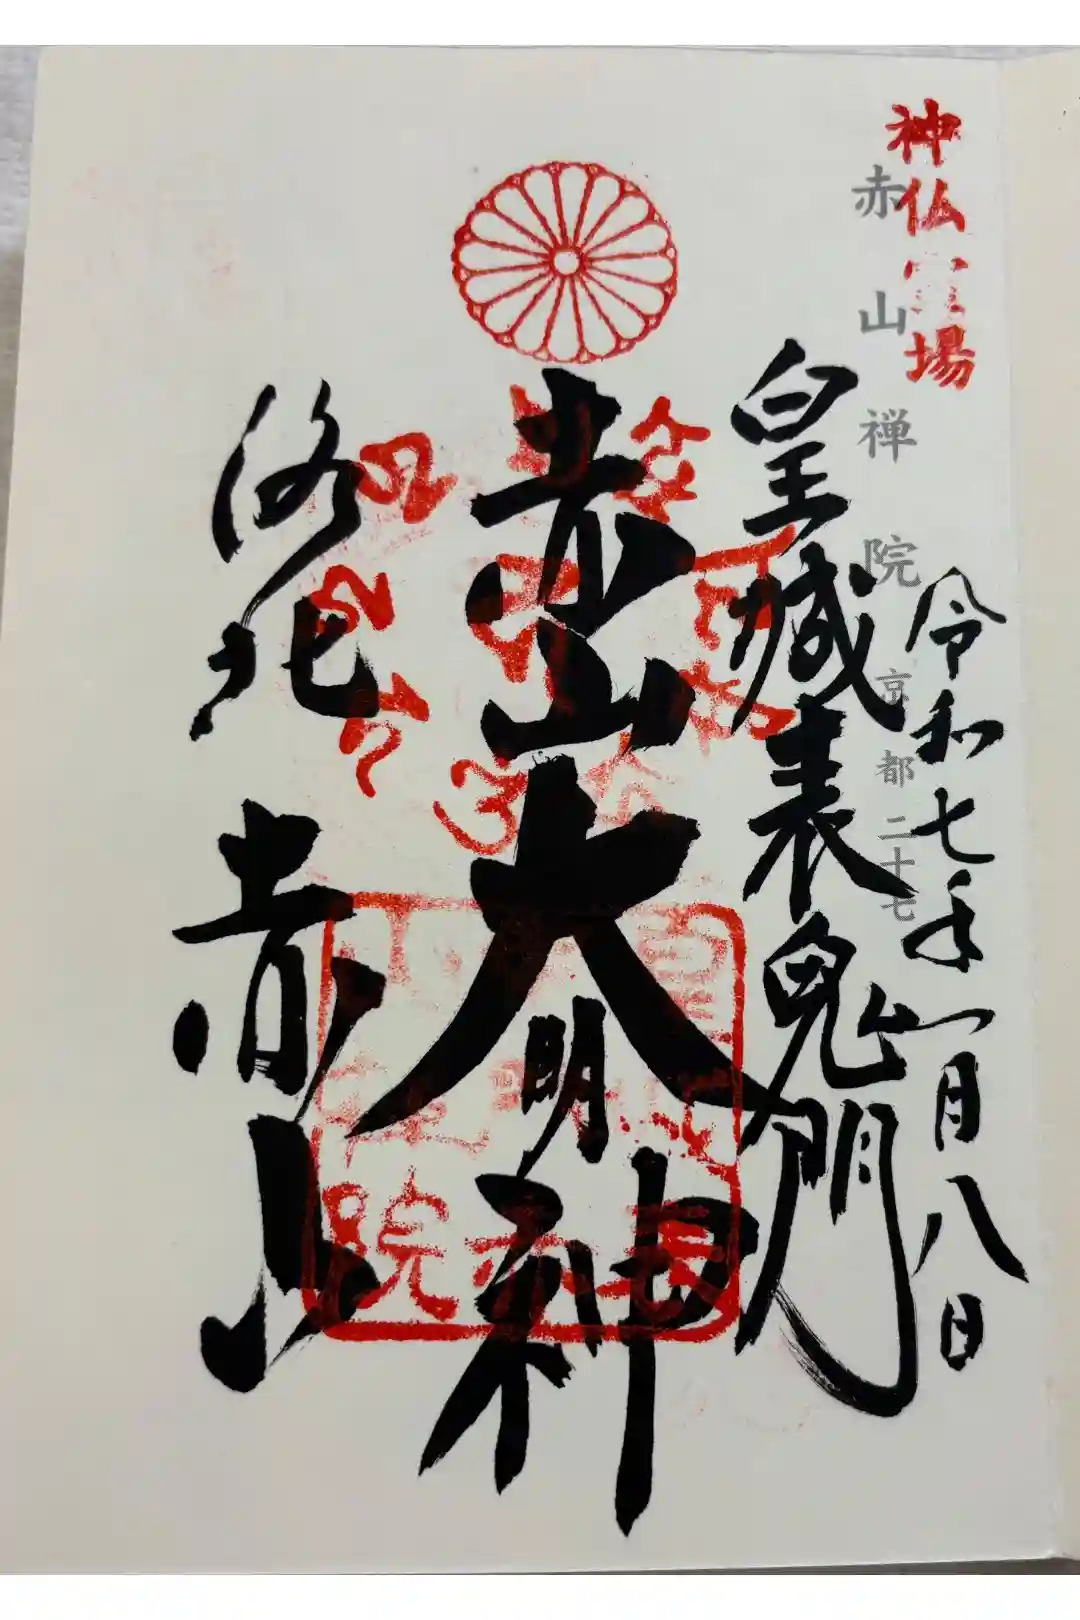 令和七年一月八日
神仏霊場
赤山禅院 京都二十七
皇城表鬼門
赤山大明神
洛北 赤山